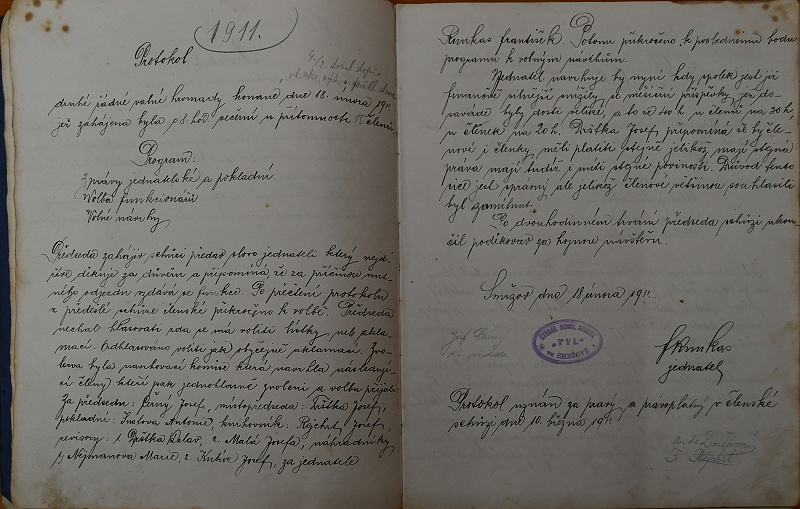 1911.
Protokol
druhé řádné valné hromady konané dne 18. února 1911
jež zahájena byla o 8 hod. večerní u přítomnosti 15 členů.
Program:
Zprávy jednatelské a pokladní
Volba funkcionářů
Volné navrhy
Předseda zahájiv schůzi předav slovo jednateli který nejd-
říve děkuje za důvěru a připomíná, že za příčinou nut-
ného odjezdu vzdává se funkce. Po přečtení protokolu
z předešlé schůze členské přikročeno k volbě. Předseda
nechal hlasovati zda se má voliti lístky neb akla-
mací. Odhlasováno voliti jak obyčejně aklamací. Zvo-
lena byla navrhovací komise která navrhla následují-
cí členy kteří pak jednohlasně zvoleni a volbu přijali:
Za předsedu: Černý Josef, místopředseda: Drštka Josef,
pokladní: Antonie, knihovník: Rychrt Josef,
revisory: 1. Drštka Václav, 2. Malá Josefa, náhradníky
1, Nejmanová Marie, 2. Josef, za jednatele
František. Potom přikročeno k poslednímu bodu
programu k volným navrhům.
Jednatel navrhuje by nyní kdy spolek jest již
finančně silnější snížily se měsíční příspěvky jež do-
savade byly dosti veliké, a to ze 40 h u členů na 30 h,
u členek na 20 h. Drštka Josef, připomíná že by čle-
nové i členky, měli platiti stejně jelikož mají stejná
práva mají tudíž i míti stejné povinosti. Důvod tento
sice jest správný ale jelikož členové většinou souhlasili
byl zamítnut.
Po dvouhodinném trvání předseda schůzi ukon-
čil poděkovav za hojnou návštěvu.
Smržov dne 18 února 1911.
Josef Černý
t. č. předseda
"FYL"
ve SMRŽOVĚ
jednatel
Protokol uznán za pravý a pravoplatný v členské
schůzi dne 10. března 1911.